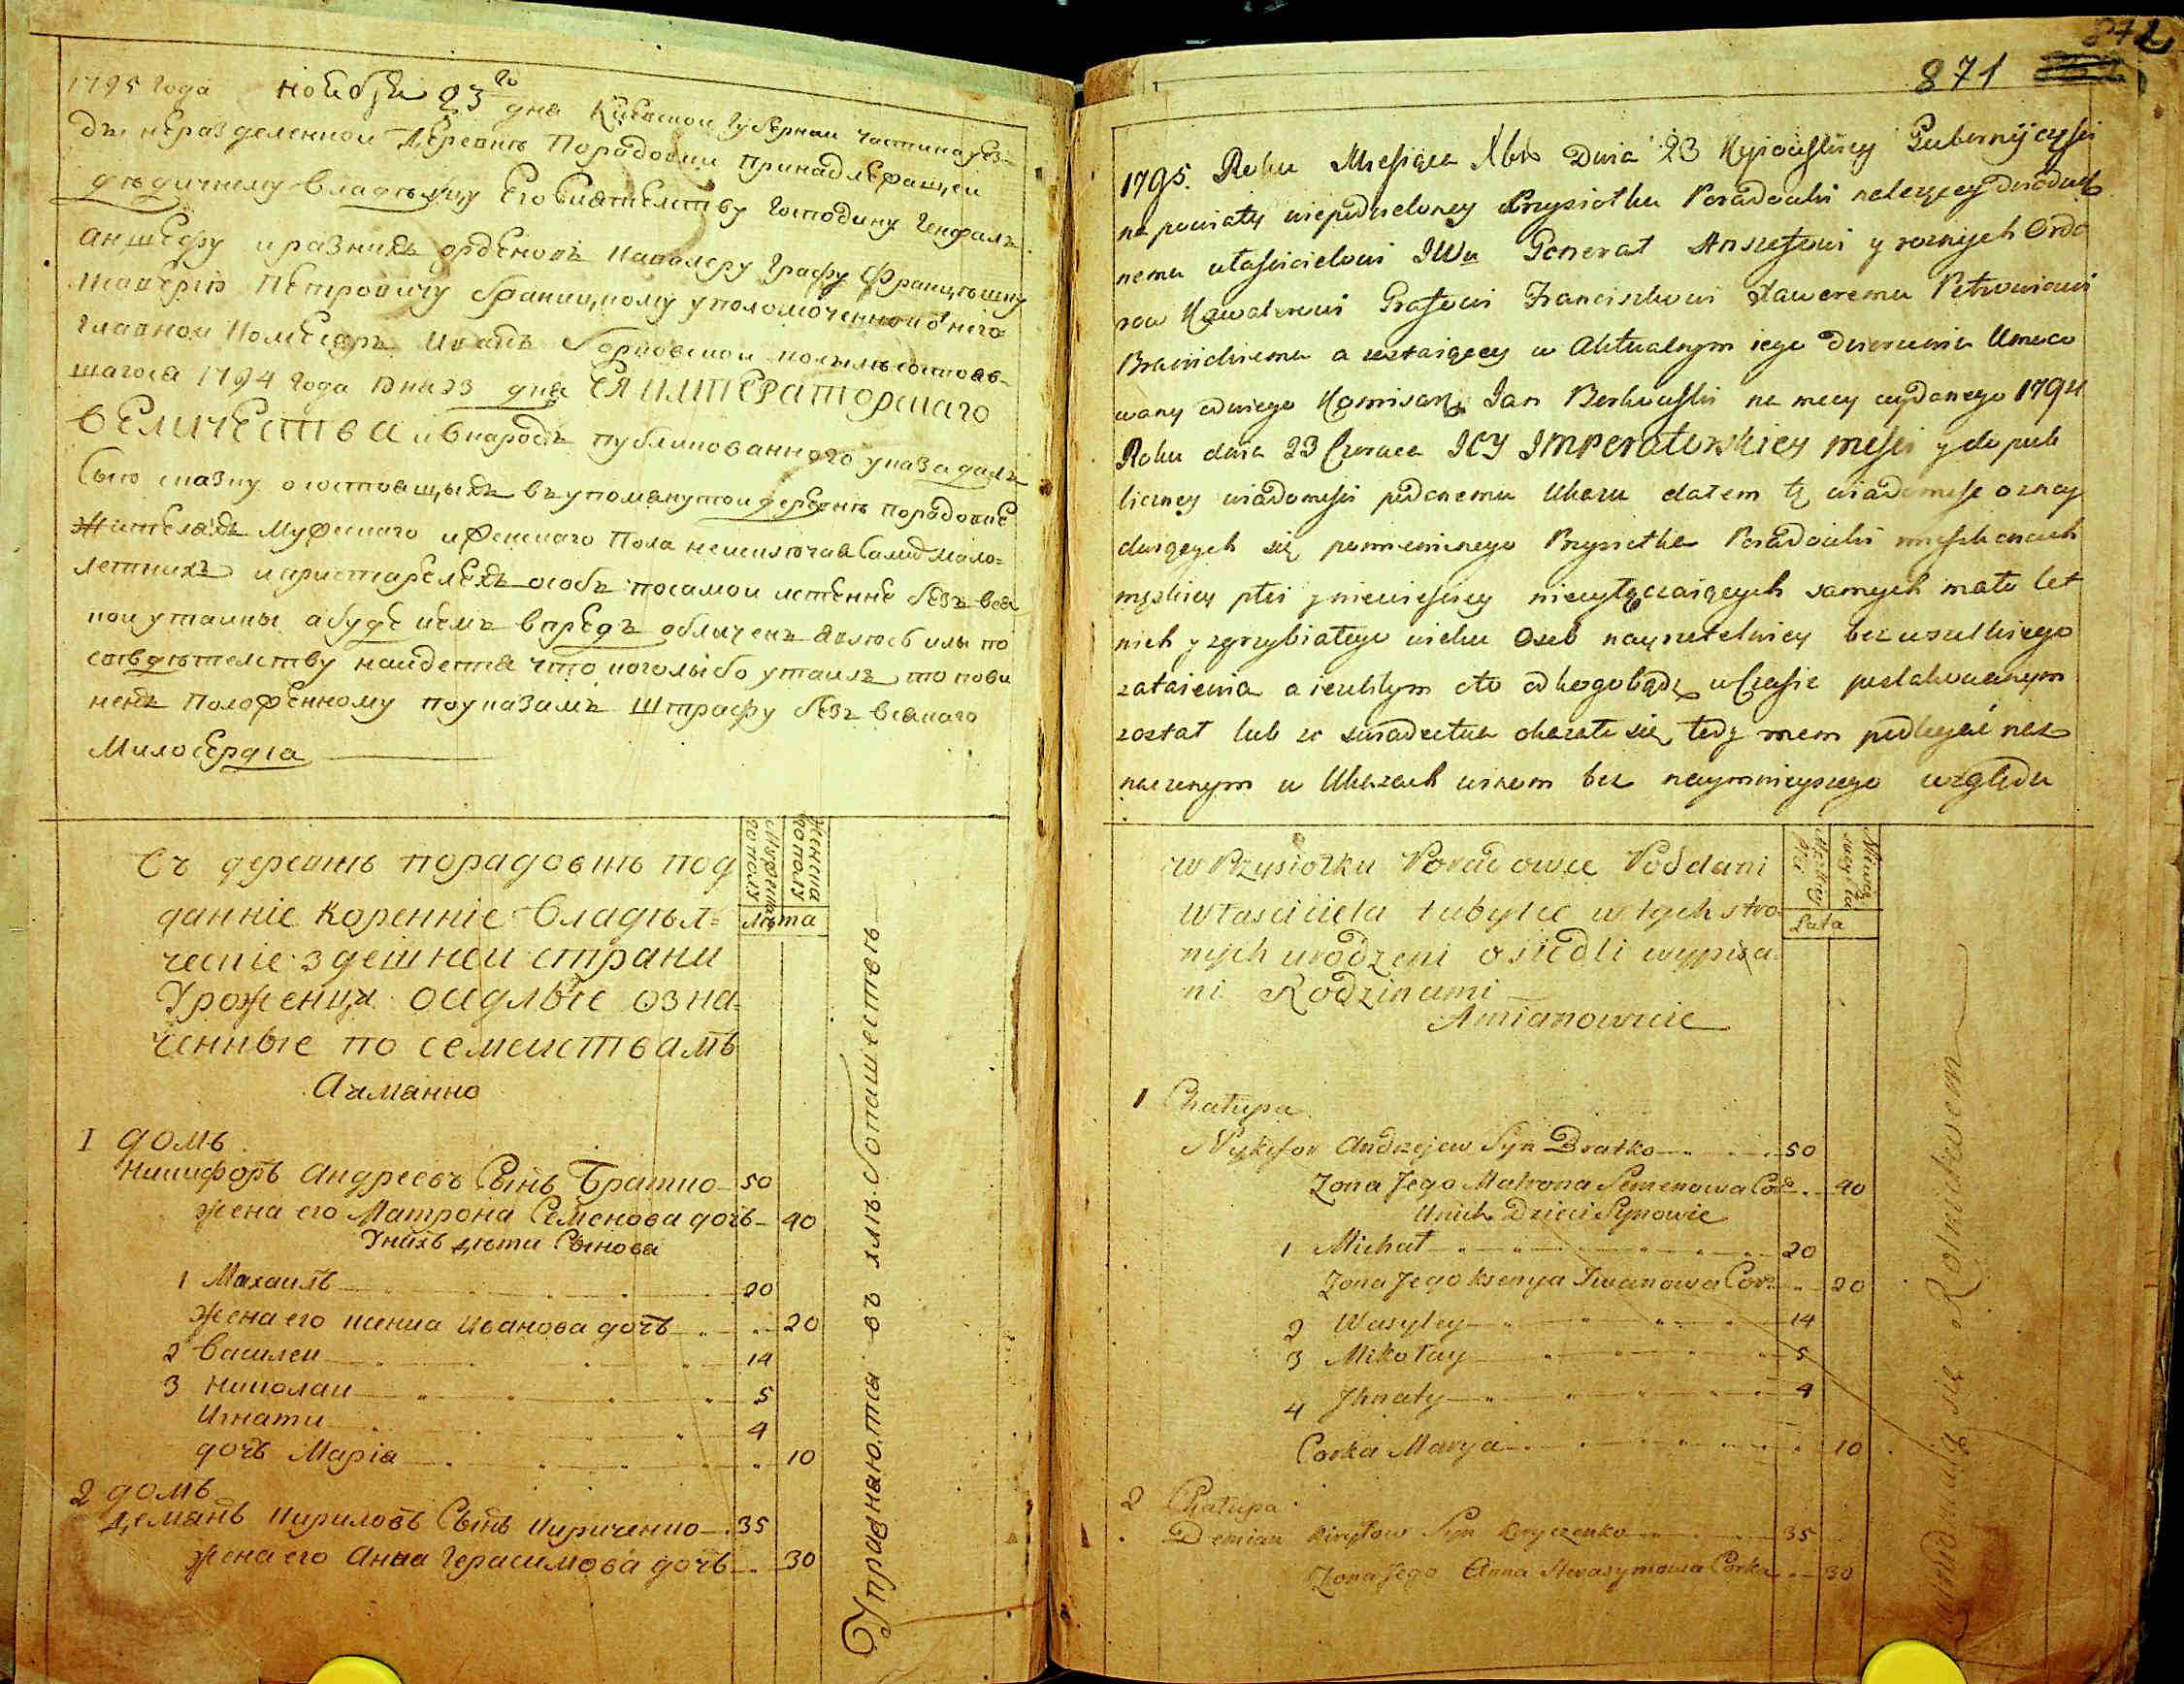 1795 года ноября 23го дна Киевской губернии частина уез-
да неразделенной деревнѣ Порадовки принадлежащей
дѣдичному владѣлцу его Сиятелству Господину Генерал
аншефу и разнихъ орденовъ Кавалеру Графу Францѣшку
Ксаверию Петровичу Браницкому уполомоченной от него
главной Комисаръ Иванъ Борковской посилѣ состояв-
шагося 1794 года Юня 23 дна ЕЯ ИМПЕРАТОРСКАГО
ВЕЛИЧЕСТВА и в народъ публикованного указа далъ
сыю сказку о состоящыхъ в упомянутой деревнѣ Порадовке
жителяхъ мужескаго и женскаго пола неисключая самих мало-
летнихъ и пристарелехъ особъ по самой истенне безъ вся
кой утайки а буде кемъ впредъ обличенъ явлюсь или по
свѣдѣтелству найдется что кого лыбо утаилъ то пови
ненъ положенному по указамъ штрафу безъ всякаго
милосердія
Въ деревнѣ порадовкѣ под
данніе коренніе владѣл-
ческіе здешней страни
Уроженци осѣдлые озна-
ченные по семействамъ
Мужеска
пола
Женска
полу
Лѣта
Аиманно
1 домъ
Никифоръ Андреевъ Сынъ Братко 50
жена его Матрона Семенова дочъ 40
У нихъ дѣти Сынова
1 Михаилъ 20
жена его ксенка Иванова дочъ 20
2 Василей 14
3 николай 5
Игнати 4
дочъ Маріа 10
2 домъ
Демянъ Кириловъ Сынъ Кириченко 35
жена его Анна Герасимова дочъ 30
Упражнаются въ хлѣбопашествѣ
871
1795. Roku Miesiąca Xbra Dnia 23 Kyiowskiey Gubernij części
na powiaty niepodzieloney Przysiołka Poradowki należącey dziedzicz
nemu własicielowi JWu Generał Anszefowi y roznych Orde
row Kawalerowi Grafowi Franciszkowi Xaweremu Petrowiczowi
Branickiemu a zostaiącey w aktualnym iego dzierzeniu Umoco
wany od niego Komisarz Jan Borkowski na mocy wydanego 1794
Roku dnia 23 Czerwca JEY IMPERATORSKIEY Mości y do pub
liczney wiadomości podanemu Ukazu datem tę wiadomość o znay
duiących się pomienionego Przysiołka Poradowki mieszkancach
męskiey płci y niewieściey niewyłączaiących samych mało let
nich y zgrzybiałego wieku Osob nayrzetelniey bez wszelkiego
zataienia a iezelibym cto od kogobądź w Czasie poszlakowanym
został lub ze swiadectwa okazało się tedy mam podlegać naz
naczonym w Ukazach winom bez naymnieyszego względu
w Przysiołku Poradowce Poddani
Własciciela tubylce w tych stro
nych urodzeni osiedli wypisa
ni Rodzinami
Amianowicie
Lata
1 Chałupa
Nykyfor Andrzejew Syn Bratko 50
Zona Jego Matrona Semenowa Cor. 40
U nich Dzieci Synowie
1 Michał 20
Zona Jego Ksenya Iwanowa Cor. 20
2 Wasyley 14
3 Mikołay 5
4 Ihnaty 4
Corka Marya 10
2 Chałupa
Demian Kiryłow Syn Kyryczenko 35
Zona Jego Anna Herasymowa Corka 30
Zaimuią się Rolnictwem